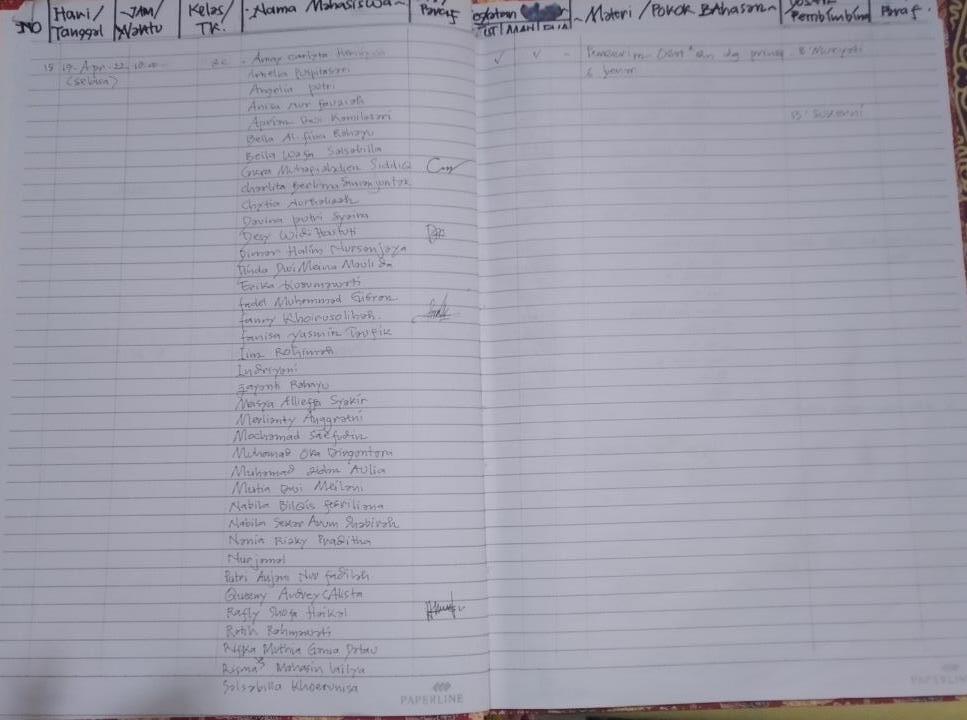 NO Hari/ Tanggal JAM/ Waktu Kelas/ TK. Nama Mahasiswa Paraf Materi / POKOK BAhasan Pembimbing Paraf
15 19-Apr-22 2C
(selasa)
Amelia Puspitasari
Angelin putri
Anisa nur fauziah
Aprina Dewi Kamilasari
Bella Al-fina Rahayu
Bella Wafa Salsabilla
Charlita Berliana Simanjuntak
Chytia Nurhalizah
Davina putri Syaira
Desy Widi Hastuti
Dimar Halim Nursanjaya
Dinda Dwi Meina Maulida
Erika kusumawati
fadel Muhammad Gufron
fanny Khoirusolihah.
fanisa yasmin Taufik
Iim Rohimah
Indriyani
Jayanti Rahayu
Meisya Allieffa Syakir
Merlianty Anggraini
Mochamad Saefudin
Muhamad Oka Dirgantara
Muhamad zidan Aulia
Mutia Dewi Meilani
Nabila Bilqis febriliana
Nabila Sekar Arum Shabirah
Nania Rizky Praditha
Nurjamal
Putri Anjani Nur fadilah
Queeny Audrey Calista
Rafly Shofa Haikal
Ratih Rahmawati
Rifka Muthia Gania
Risma Mahasin lailya
Salsabilla Khoerunisa
PAPERLINE
PAPERLINE